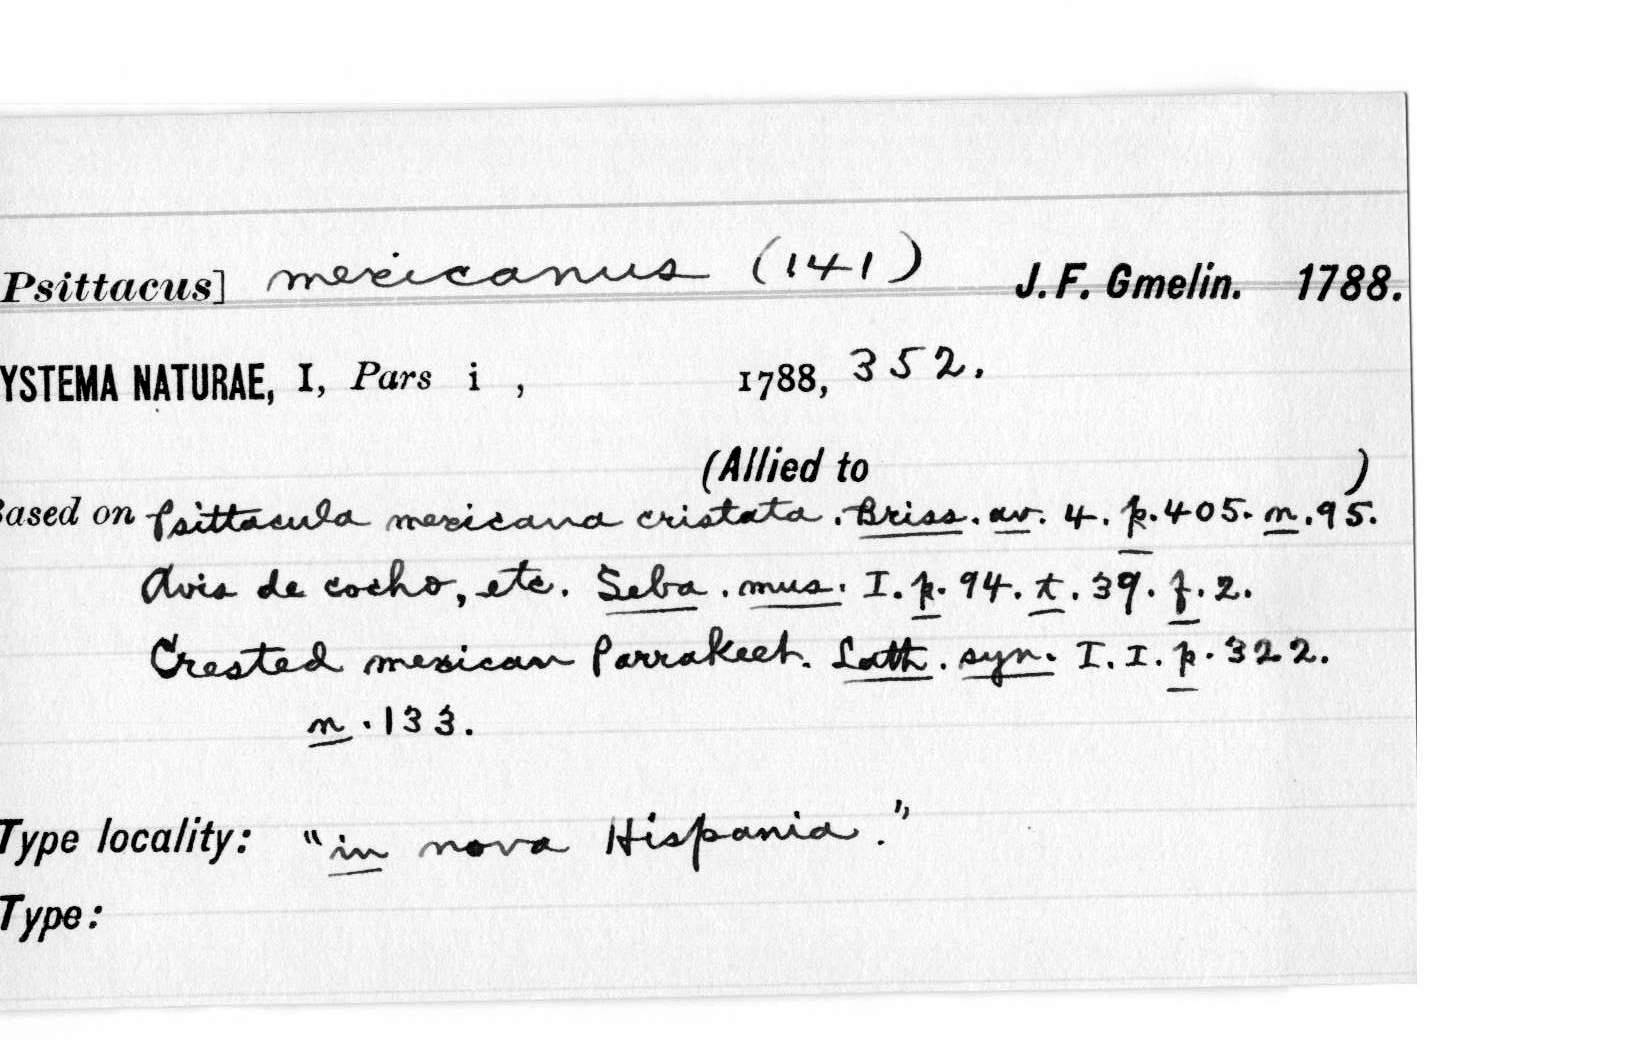 Psittacus] mexicanus (141) J. F. Gmelin. 1788.
YSTEMA NATURAE, I, Pars i , 1788, 352.
(Allied to )
Based on Psittacula mexicana cristata. Briss. av. 4. p. 405. n. 95.
Avis de cocho, etc. Seba. mus. I. p. 94. t. 39. f. 2.
Crested mexican Parrakeet. Lath. syn. I. I. p. 322.
n. 133.
Type locality: "in nova Hispania."
Type: